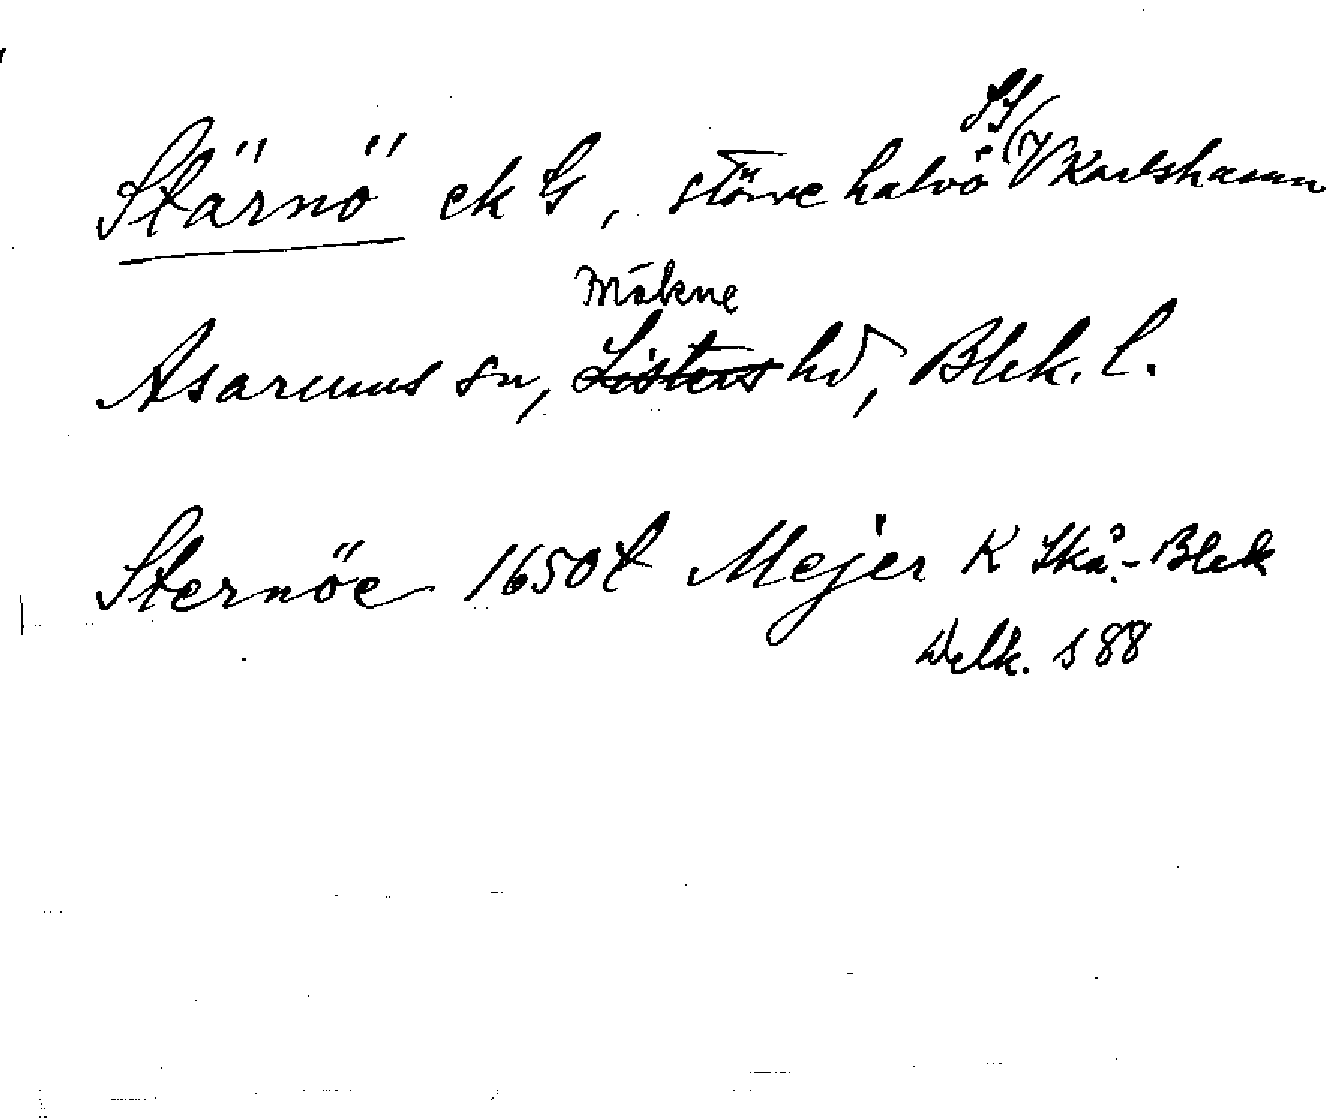 Stärnö ek G, större halvö V Karlshamn
Bräkne
Asarums sn, Listers hd, Blek. l.
Sternöe 1650 t Mejer K Skå.-Blek
Delk. s 88